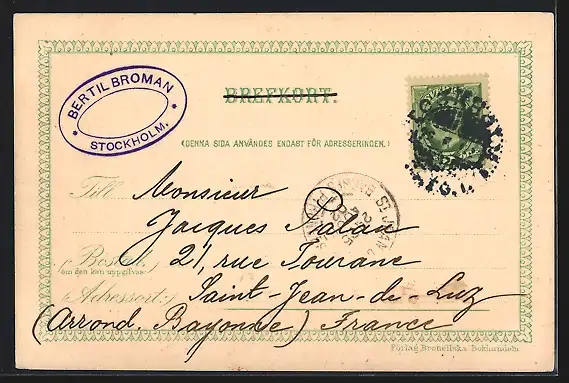 BERTIL BROMAN
STOCKHOLM.
BREFKORT.
(DENNA SIDA ANVÄNDES ENDAST FÖR ADRESSERINGEN.)
Till Monsieur
Jacques Palau
Bostad:
om den kan uppgifvas
21, rue Tourane
Adressort: Saint-Jean-de-Luz
(Arrond. Bayonne) France
ST JEAN
Förlag Bronellska Bokhandeln